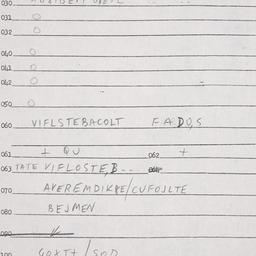 030
031 0
032 0
040 0
041 0
042 0
050 0
060 VIFLSTEBACOLT FADQS
061 I QU 062 +
063 TATE VIFLOSTE,B.. 064
070 AVEREMDIKPE/CUFOJLTE
080 BEJMEN
090
100